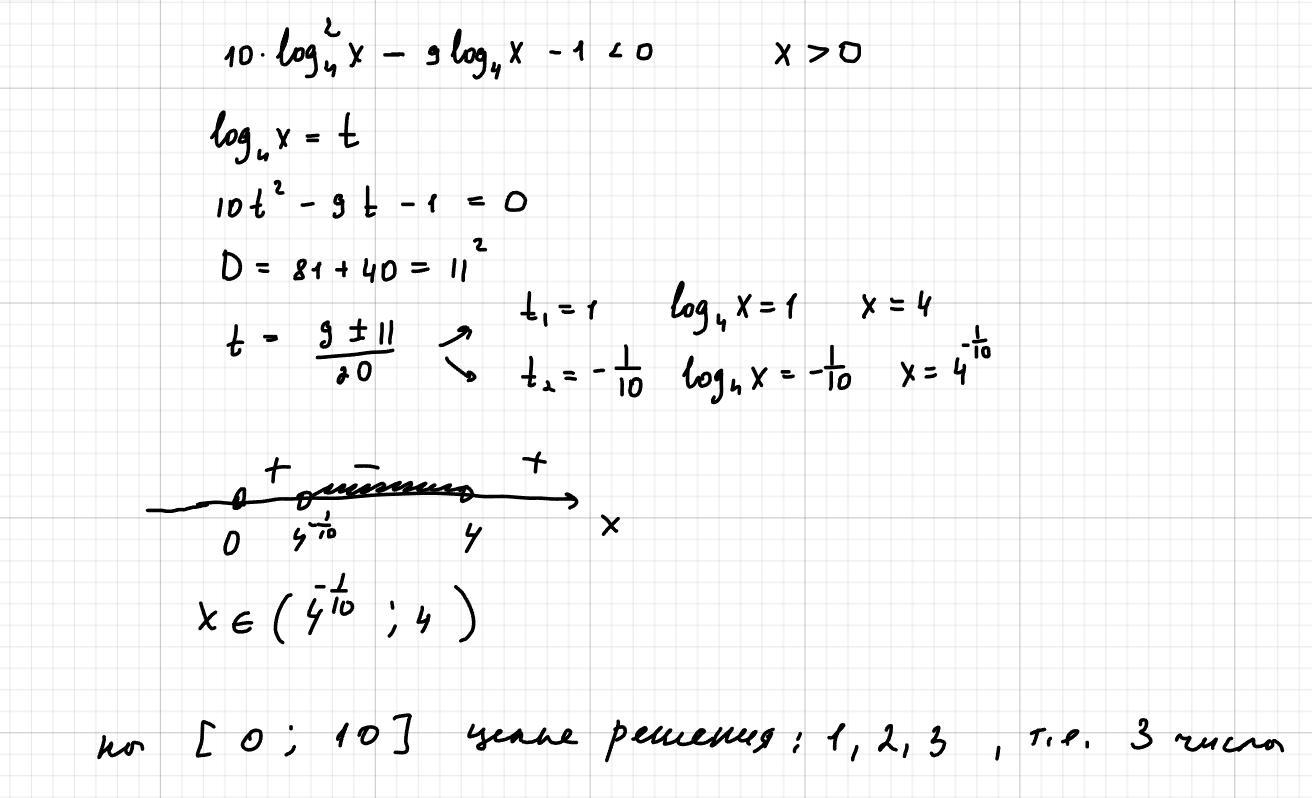 10·log₄²x − 9log₄x − 1 < 0 x > 0
log₄x = t
10t² − 9t − 1 = 0
D = 81 + 40 = 11²
t = (9 ± 11)/20
t₁ = 1 log₄x = 1 x = 4
t₂ = −1/10 log₄x = −1/10 x = 4^(−1/10)
+ − +
0 4^(−1/10) 4 x
x ∈ (4^(−1/10) ; 4)
на [0 ; 10] целые решения: 1, 2, 3 , т.е. 3 числа